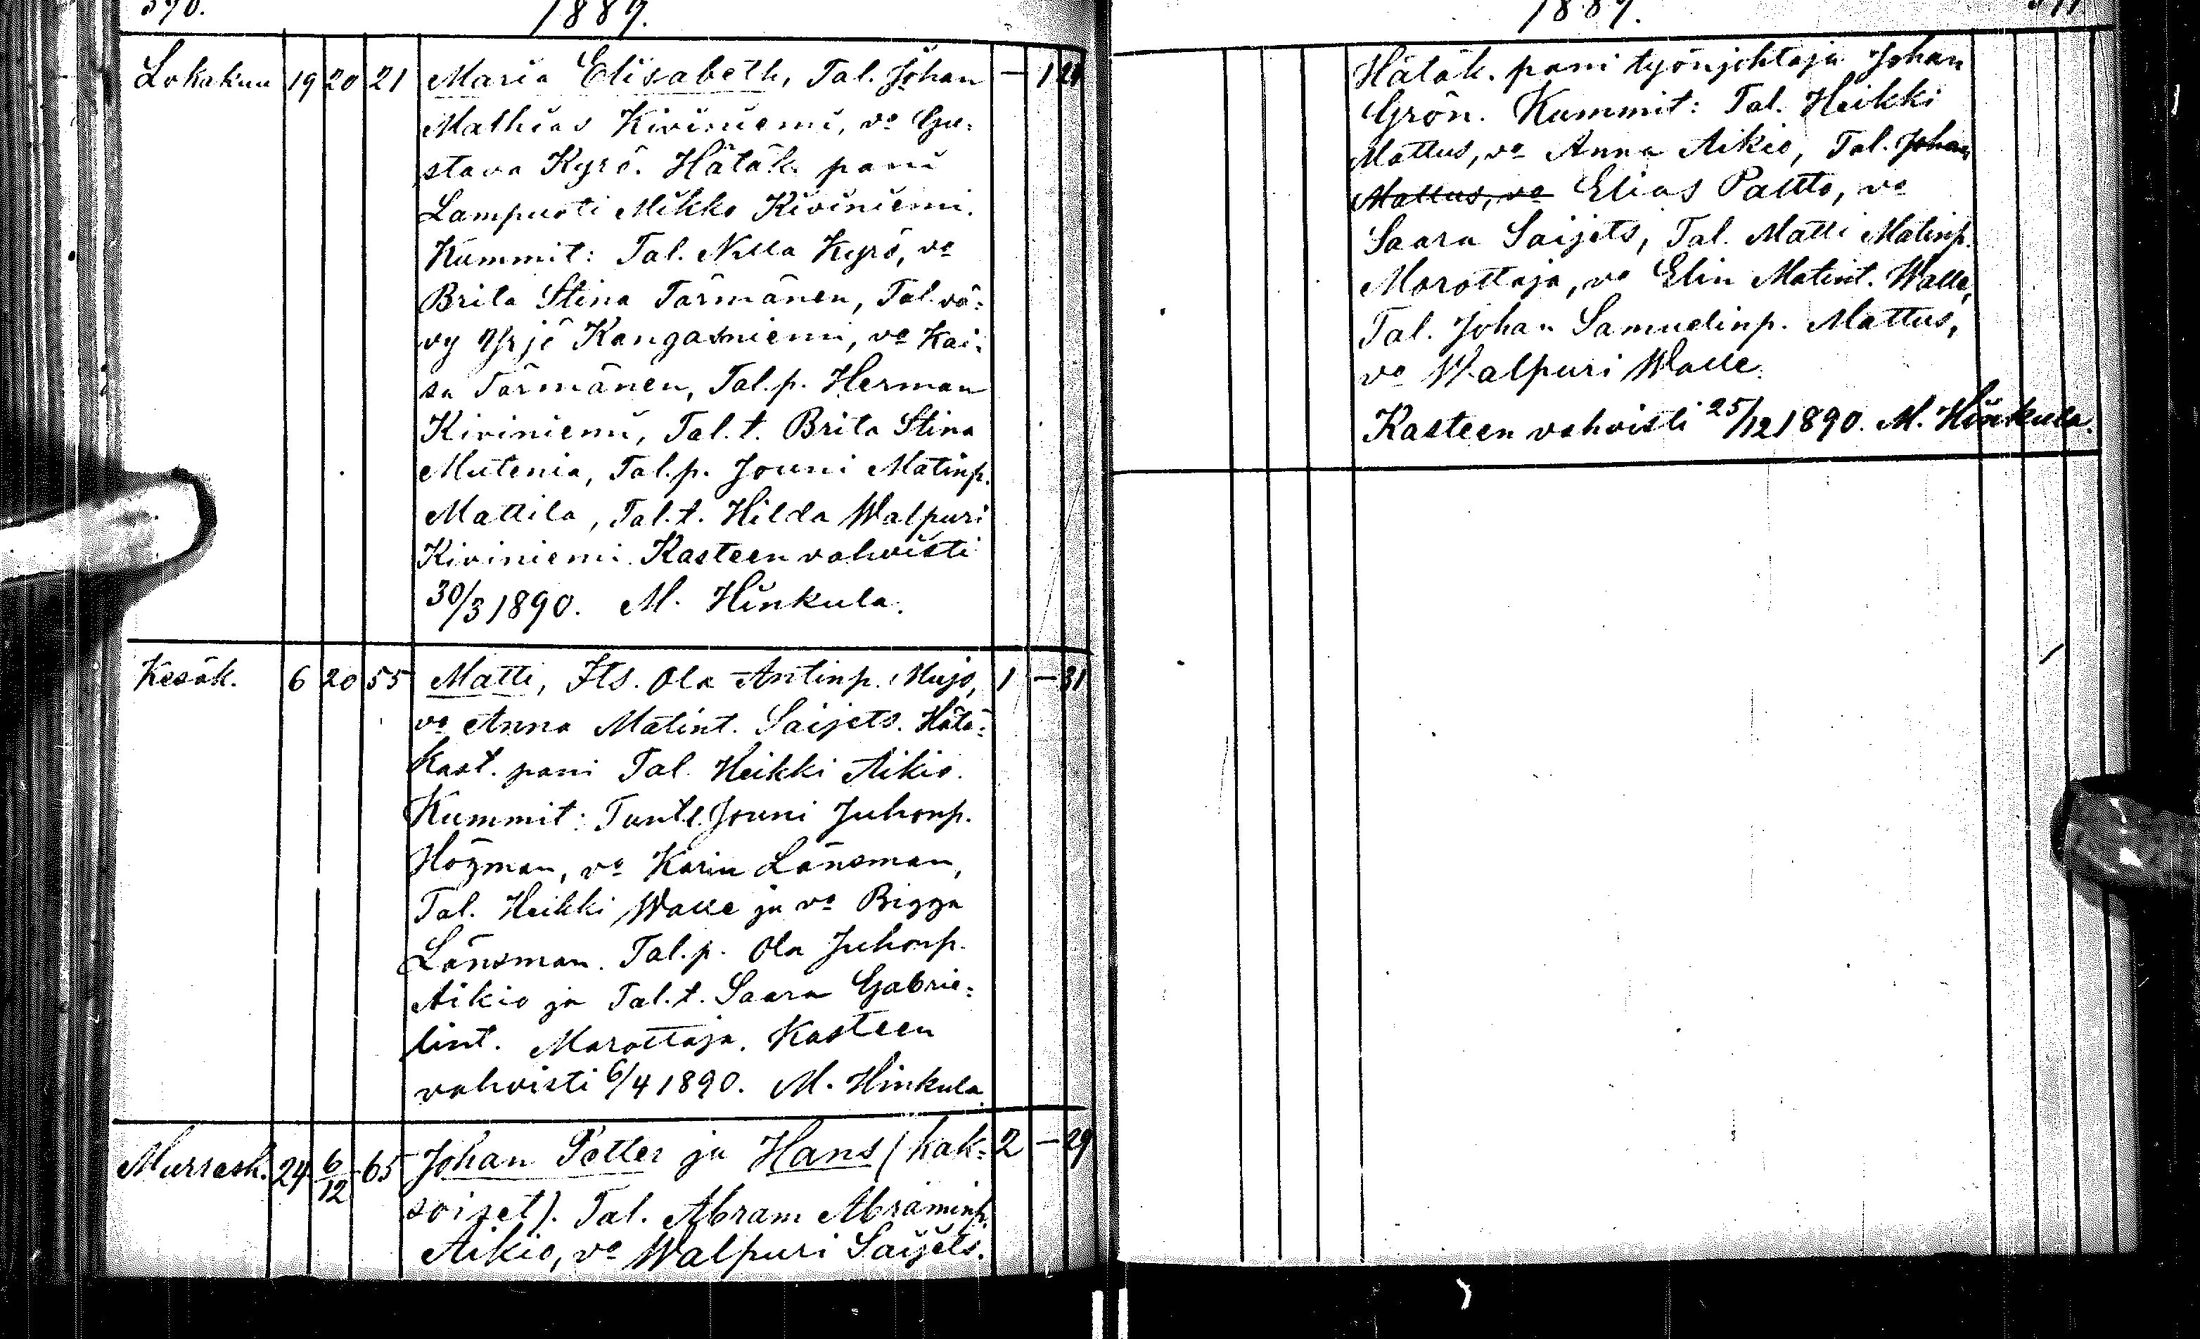 390.
1889.
Lokakuu 19 20 21 Maria Elisabeth, Tal. Johan — 1 21
Mathias Kiviniemi, vo Gu=
stava Kyrö. Hätäk. pani
Lampuoti Mikko Kiviniemi.
Kummit: Tal. Nilla Kyrö, vo
Brita Stina Tärmänen, Tal. vä=
vy Yrjö Kangasniemi, vo Kai=
sa Tärmänen, Tal.p. Herman
Kiviniemi, Tal.t. Brita Stina
Mutenia, Tal.p. Jouni Matinp.
Mattila, Tal.t. Hilda Walpuri
Kiviniemi. Kasteen vahvisti
30/3 1890. M. Hinkula.
Kesäk. 6 20 55 Matti, Its. Ola Antinp. Mujo, 1 — 31
vo Anna Matint. Saijets. Hätä=
kast. pani Tal. Heikki Aikio.
Kummit: Jouni Juhonp.
Högman, vo Karin Länsman,
Tal. Heikki Walle ja vo Bigga
Länsman. Tal.p. Ola Juhonp.
Aikio ja Tal.t. Saara Gabrie=
lint. Morottaja. Kasteen
vahvisti 6/4 1890. M. Hinkula.
Marrask. 24 6/12 65 Johan Petter ja Hans (kak= 2 — 29
soiset). Tal. Abram Abraminp.
Aikio, vo Walpuri Saijets.
1889.
Hätäk. pani työnjohtaja Johan
Grön. Kummit: Tal. Heikki
Mattus, vo Anna Aikio, Tal. Johan
Mattus, vo Elias Paltto, vo
Saara Saijets, Tal. Matti Matinp.
Morottaja, vo Elin Matint. Walle,
Tal. Johan Samuelinp. Mattus,
vo Walpuri Walle.
Kasteen vahvisti 25/12 1890. M. Hinkula.